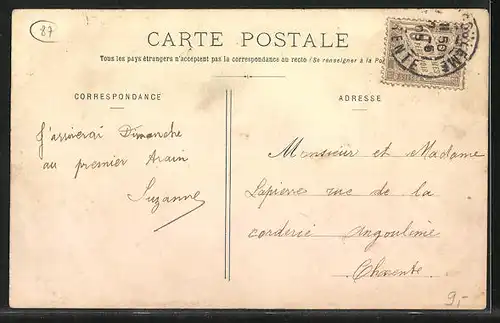 87
CARTE POSTALE
Tous les pays étrangers n'acceptent pas la correspondance au recto (Se renseigner à la Po
CORRESPONDANCE
ADRESSE
J'arriverai Dimanche
au premier train
Suzanne
Monsieur et Madame
Lapierre rue de la
corderie Angoulême
Charente
9,-